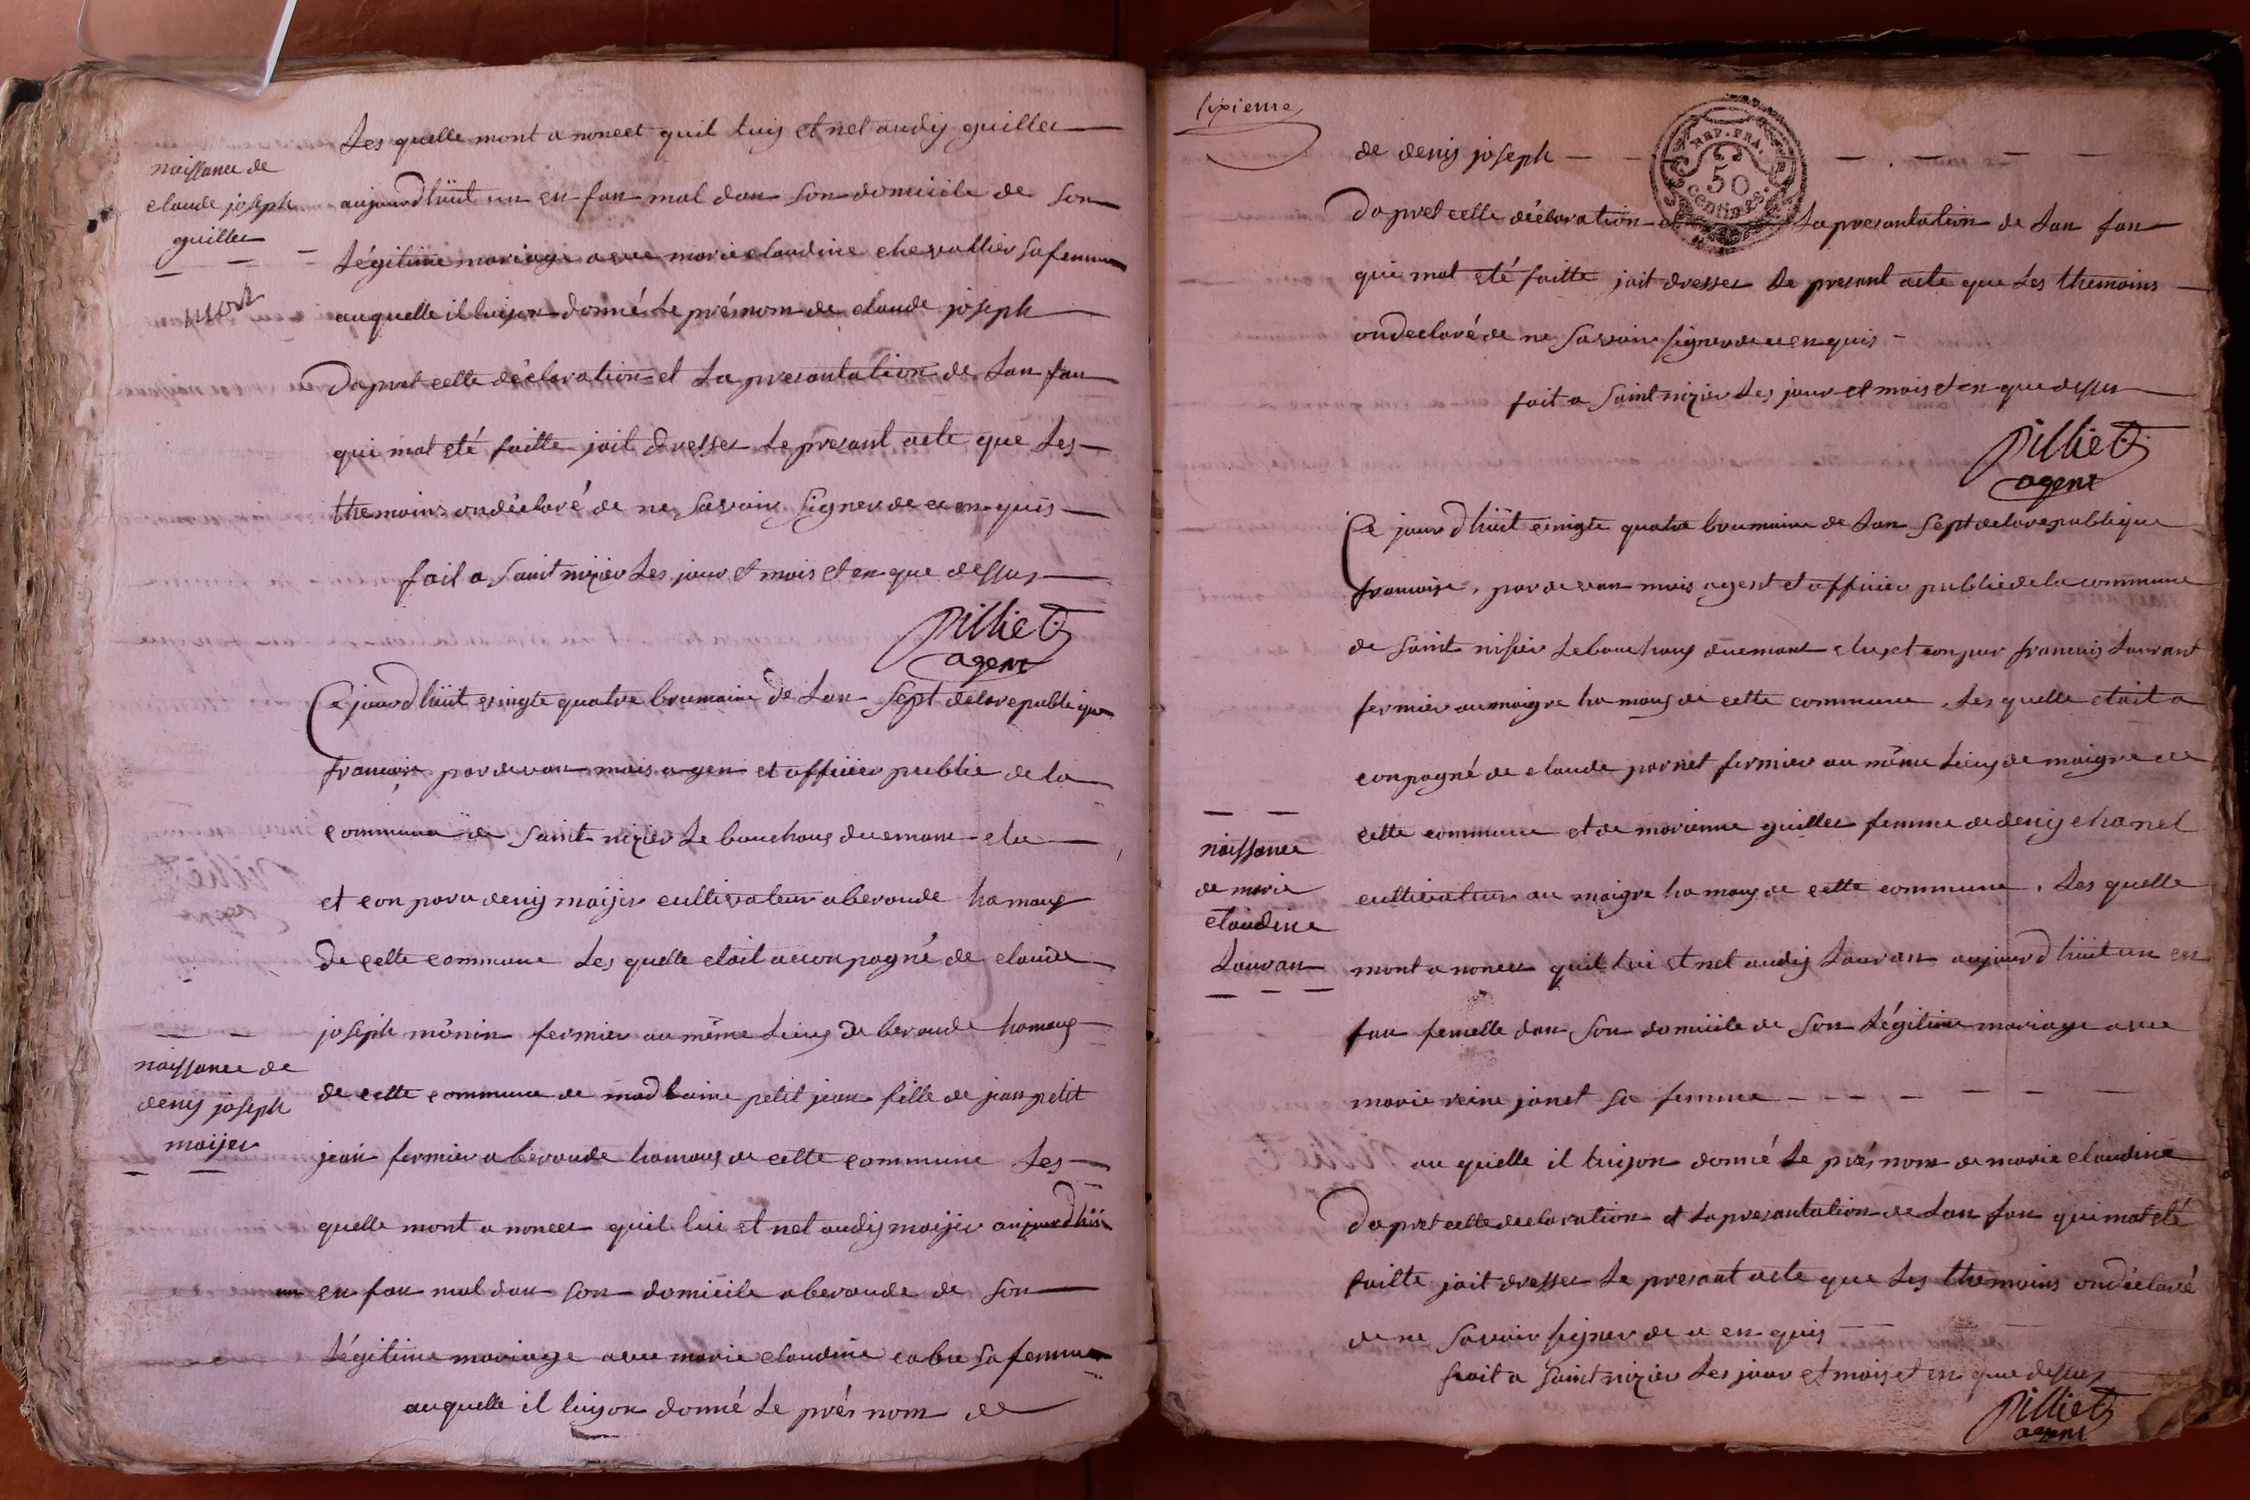 Les quelle mont a noncet quil luij et net audij guiller
naissance de
claude joseph
guiller
mort
aujourdhüit un en fan mal dan son domicile de son
Légitime mariage avec marie claudine chevallier sa femme
auquelle il luijon donné Le prénom de claude joseph
Dapret cette déclaration et La presantation de Lan fan
qui mat eté faitte jait dresser Le presant acte que Les
themoins ondéclaré de ne savoir signer de ce en quis
fait a saint nizier Les jour et mois et en que dessus
Pilliet
agent
Ce jourdhüit vingte quatre brumaire de Lan sept delarepublique
francoise pardevan mois agen et officier public de la
commune de saint nizier Le bouchoux duemant elu
et conparu denij maijer cultivateur a beroude hamaux
De cette commune Les quelle etoit acconpagné de claude
joseph mônin fermier au même Lieuy de beroude hamaux
naissance de
denij joseph
maijer
de cette commune de madlaine petit jean fille de jean petit
jean fermier a beroude hamaux de cette commune Les
quelle mont a noncer quil lui et net audij maijer aujourdhüi
un en fan mal dan son domicile a beroude de son
Légitime mariage avec marie claudine cabu sa femme
auquelle il luijon donné Le prés nom de
sixieme
de denij joseph
REP. FRA.
50
centimes
Dapret cette déclaration et La presantation de Lan fan
qui mat eté faitte jait dresser Le presant acte que Les themoins
ondeclaré de ne savoir signer de ce en quis
fait a saint nizier Les jour et mois et en que dessus
Pilliet
agent
Ce jour dhüit vingte quatre brumaire de Lan sept delarepublique
francoise, pardevan mois agent et officier public de la commune
de saint nisier Lebouchoux duemant elu, et conparu francois Lauvant
fermier au maigre hamaux de cette commune, Les quelle etait a
conpagné de claude parnet fermier au même Lieuy de maigre de
cette commune et de marianne guiller femme de denij chanel
naissance
de marie
claudine
Lauvan
cultivateur au maigre hamaux de cette commune, Les quelle
mont a noncer quil lui et net audij Lauvan aujourdhüit un en
fan femelle dan son domicile de son Légitime mariage avec
marie reine janet sa femme
au quelle il luijon donné Le prés nom de marie claudine
Dapret cette declaration et La presantation de Lan fan qui mat eté
faitte jait dresser Le presant acte que Les themoins ondéclaré
de ne savoir signer de ce en quis
fait a saint nizier Les jour et mois et en que dessus
Pilliet
agent